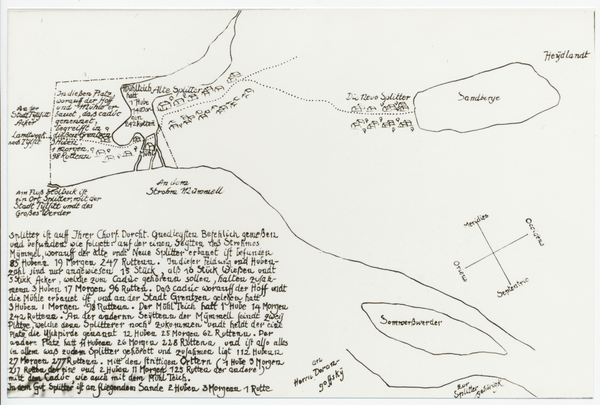 Heÿdlandt
In dießen Platz
worauf der Hoff
und Mühle er
bauet, daß caduc
genennet,
begreifft in
3 Huben
1 Morgen
98 Rutten
Mühlteich
hatt
1 Hube
14 Mor
242 Rutten
Alte Splitter
Die Neue Splitter
Sandberge
An der
Stadt Tilßitt
Acker
Landtweg
nach Tilßitt
Am Fluß
ein Ort Splitter, mit der
Stadt Tilßitt undt des
Großes Werder
An dem
Strohm Mümmell
Meridies
Occidens
Oriens
Septentrio
Splitter ist auf Ihrer Churf. Durchl. Gnedigsten Befehlich gemeßen
und befunden wie folgett: auf der einen Seÿtten des Strohmes
Mümmel, worauf der alte undt Neue Splitter erbauet ist befunden
85 Huben 19 Morgen 247 Rutten. In dieser Feldung und Huben-
zahl sind nur angewiesen 15 Stück, als 10 Stück Wießen undt
5 Stück Acker, welche zum Caduc gehören sollen, halten zusam-
men 3 Huben 17 Morgen 96 Rutten. Daß caduc worauff der Hoff undt
die Mühle erbauet ist, und an der Stadt Grentzen gelegen hatt
3 Huben 1 Morgen 98 Rutten. Der Mühl Teich hatt 1 Hube 14 Morgen
242 Rutten. An der andernn Seÿtten der Mümmell seindt zweÿ
Plätze, welche denn Splitterer noch zukommen undt heldt der eine
Platz die genant 12 Huben 25 Morgen 62 Rutten. Der
ander Platz hatt 11 Huben 26 Morgen 228 Rutten und ist also alles
in allem waß zudem Splitter gehörett und zusammen ligt 112 Huben
27 Morgen 277 Rutten. Mitt den strittigen Örttern (3 Hube 3 Morgen
217 Rutten der eine und 2 Huben 11 Morgen 123 Rutten der andere)
mitt den Caduc wie auch mit dem Mühl Teich.
In dem gut Splitter ist an fliegendem Sande 2 Huben 3 Morgenn 1 Rutte
Sommerßwerder
Herrn
zur
Splitter
gehörigk